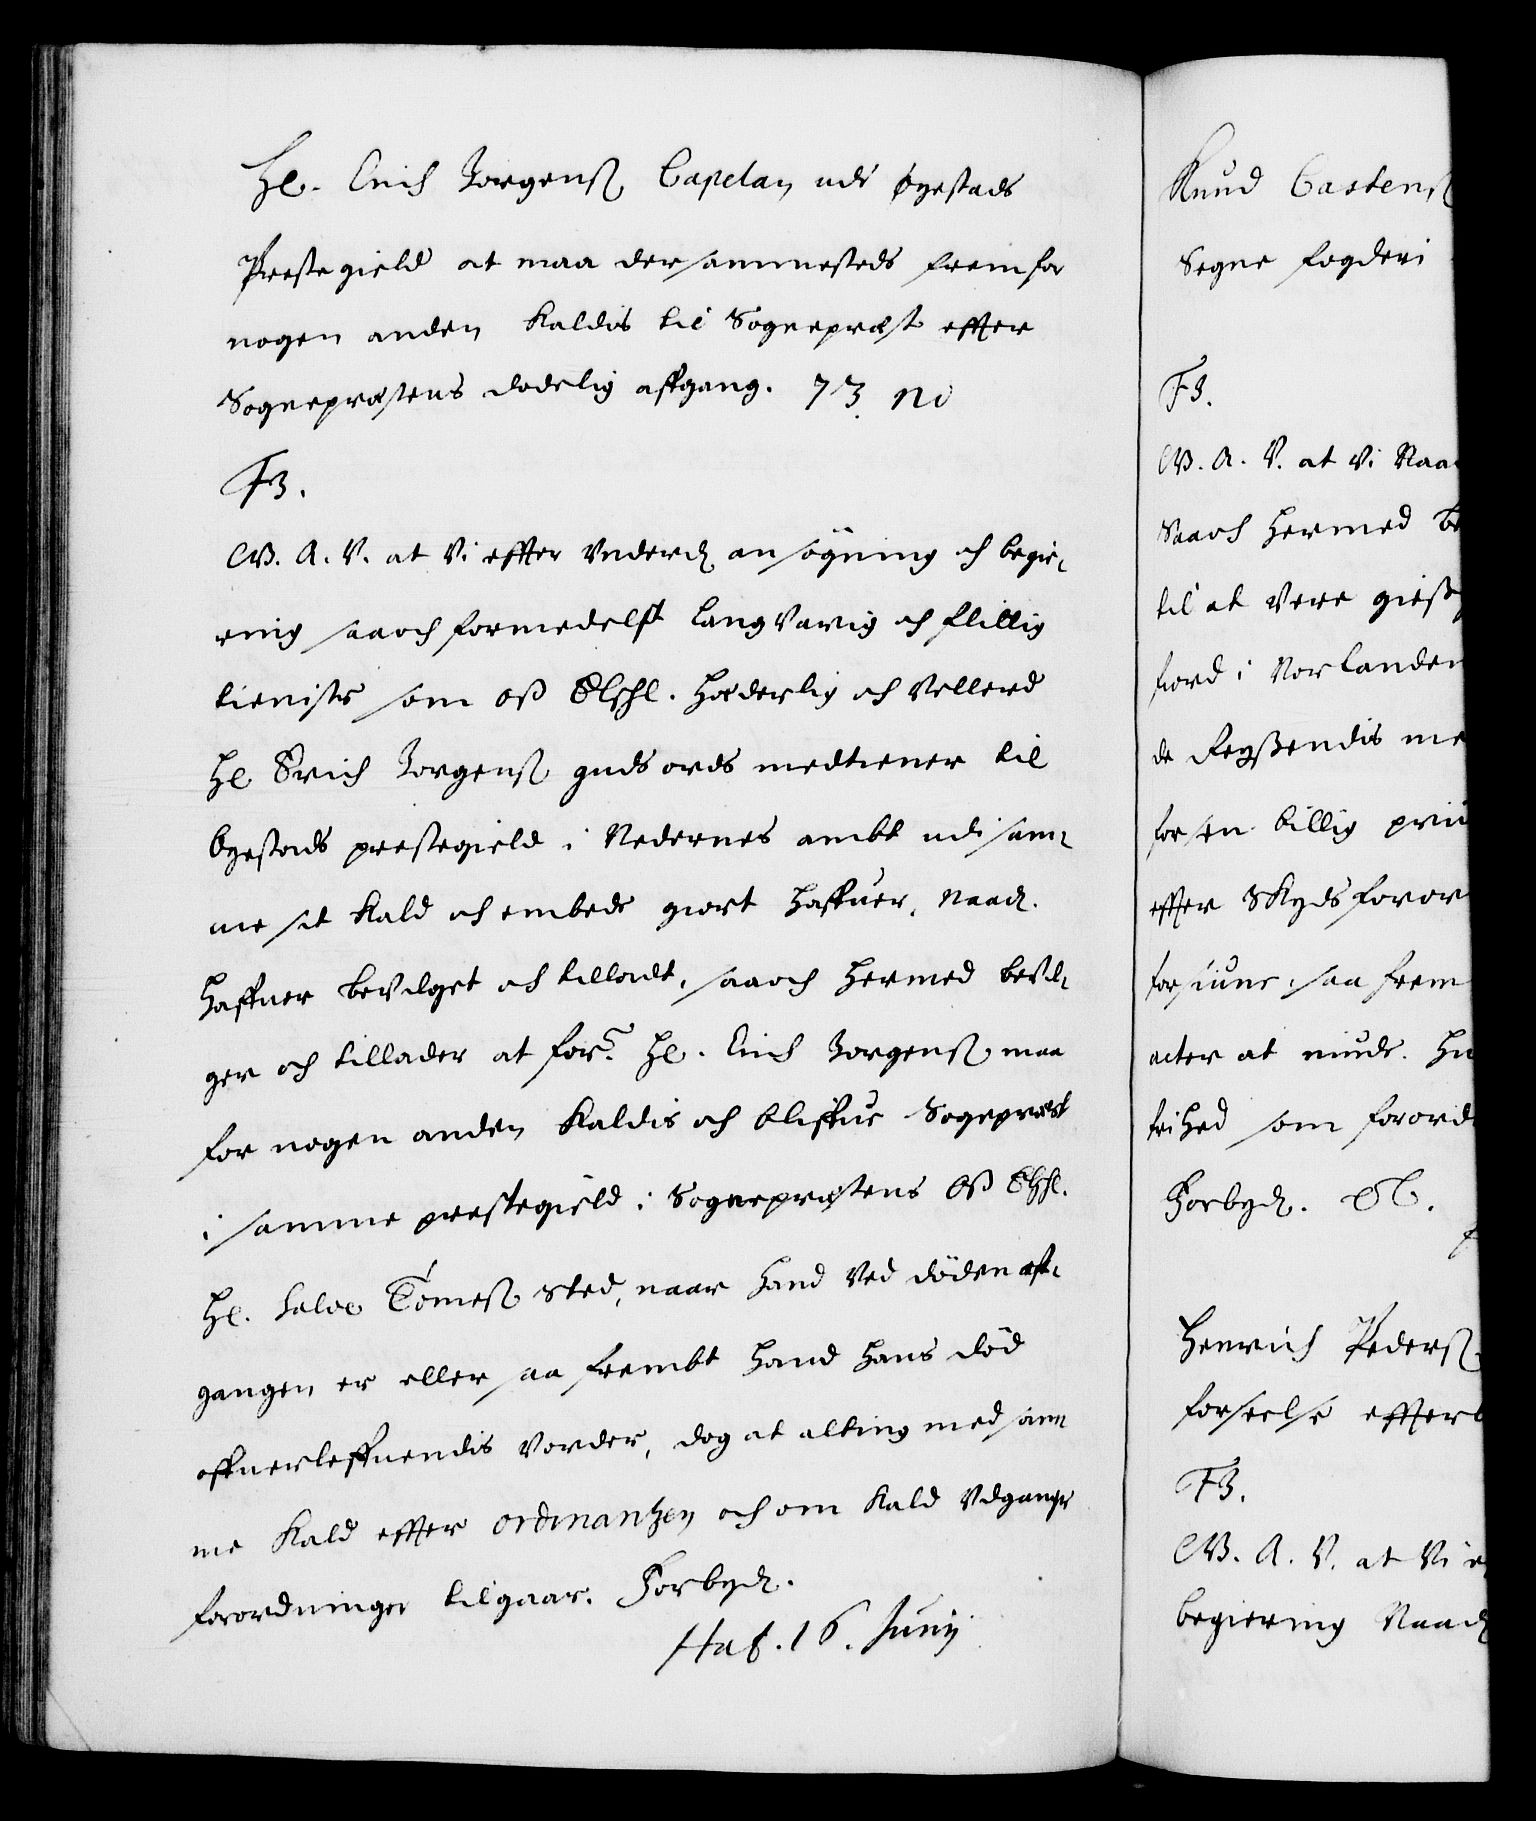 Hl. Erich Jorgenß Capelan udi Øyestads
Prestegield at maa der sammesteds frem for
nogen anden Kaldis til Sognepræst effter
Sogneprestens dødelig affgang. 73. No
F3.
G.A.V. at Vi effter Underd. ansøgning och begie-
ring saa och formedelst langvarig och flittig
tieniste som oß Elschl. Hæderlig och Vellerd
Hl Erich Jorgenß guds ords medtiener til
Øyestads prestegield i Nedernes ambt udi sam-
me sit Kald och embede giort haffuer, naad.
haffuer bevilget och tilladt, saa och hermed bevil-
ger och tillader at for.ne Hl. Erich Jorgenß maa
for nogen anden Kaldis och bliffue Sognepræst
i samme prestegield i Sogneprestens Oß Elschl.
Hl. Salve Tomeß sted, naar hand Ved döden aff-
gangen er eller saa frembt hand hans død
offuerleffuendis Vorder, dog at alting med sam-
me Kald effter ordinantzen och om Kald Udgangne
forordninger tilgaar. Forbyd.
Haf. 16. Junij
Knud Castenß
Segne fogderi
F3.
G.A.V. at Vi Naa
Saa och hermed be
til at Vere gieß
fiord i Norlanden
de Reyßendis me
for en billig prii
effter Skyds foror
forsiune, saa frem
acter at niude. Hu
frihed som forord
Forbyd. Etc.
Henrich Pederß
forseelse effterl
F3.
G.A.V. at Vi e
begiering Naad